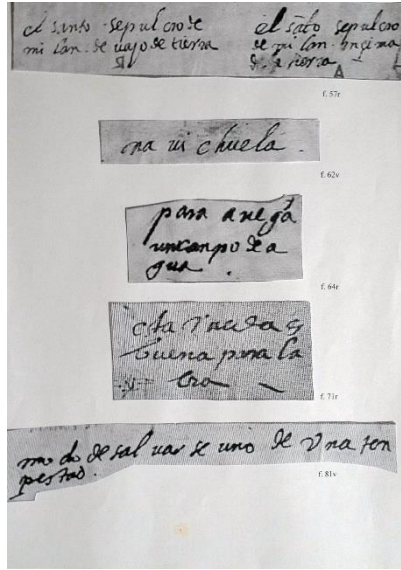 el santo sepulcro de
mi lan. de vajo de tierra
el sãto sepulcro
de mi lan. ençima
de la tierra
A
f. 57r
na vi chuela.
f. 62v
para anegã
un canpo de a
gua.
f. 64r
esta rueda es
buena para la
f. 71r
mo do de sal uar se uno de vna ten
pestad.
f. 81v